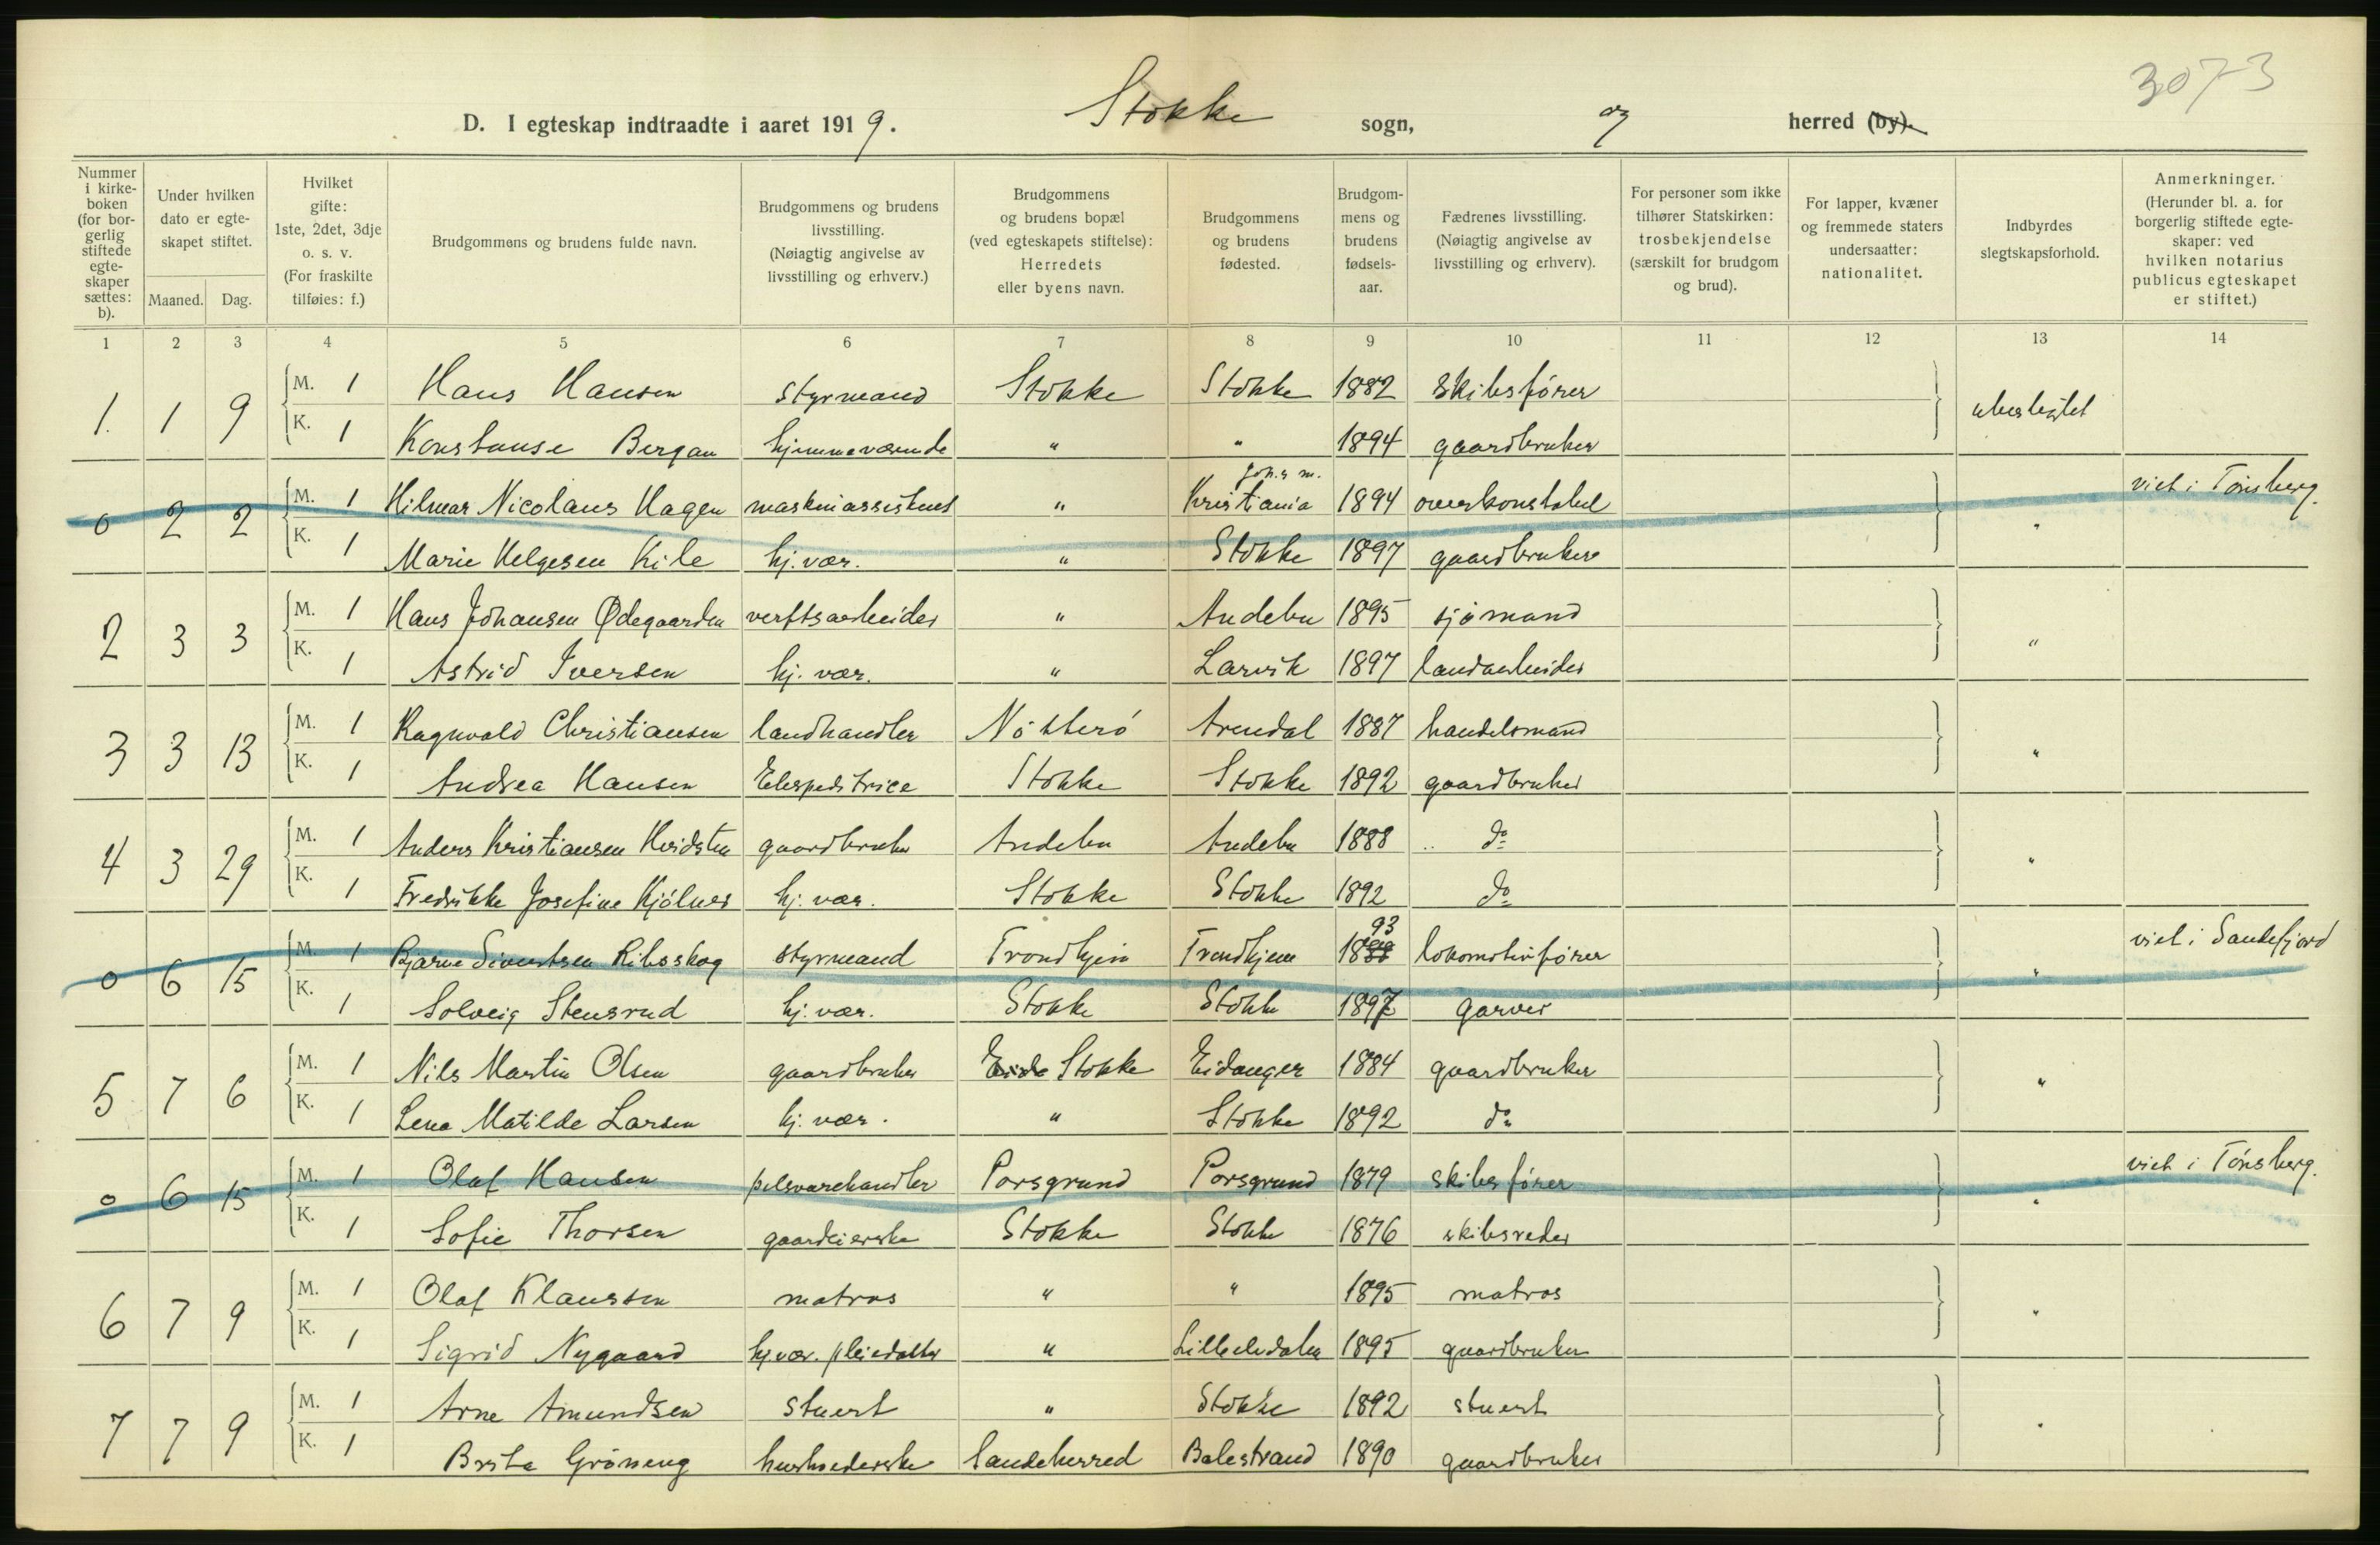 3073
D. I egteskap indtraadte i aaret 1919. Stokke sogn, og herred (by).
Nummer i kirkeboken (for borgerlig stiftede egteskaper sættes: b).
Under hvilken dato er egteskapet stiftet.
Maaned. Dag.
Hvilket gifte: 1ste, 2det, 3dje o. s. v. (For fraskilte tilføies: f.)
Brudgommens og brudens fulde navn.
Brudgommens og brudens livsstilling. (Nøiagtig angivelse av livsstilling og erhverv.)
Brudgommens og brudens bopæl (ved egteskapets stiftelse): Herredets eller byens navn.
Brudgommens og brudens fødested.
Brudgommens og brudens fødselsaar.
Fædrenes livsstilling. (Nøiagtig angivelse av livsstilling og erhverv).
For personer som ikke tilhører Statskirken: trosbekjendelse (særskilt for brudgom og brud).
For lapper, kvæner og fremmede staters undersaatter: nationalitet.
Indbyrdes slegtskapsforhold.
Anmerkninger. (Herunder bl. a. for borgerlig stiftede egteskaper: ved hvilken notarius publicus egteskapet er stiftet.)
1 2 3 4 5 6 7 8 9 10 11 12 13 14
1. 1 9 M. 1 Hans Hansen styrmand Stokke Stokke 1882 Skibsfører ubeslegtet
K. 1 Konstanse Bergan hjemmeværende " " 1894 gaardbruker
0 2 2 M. 1 Hilmar Nicolaus Hagen maskinassistent " Kristiania 1894 overkonstabel " viet i Tønsberg.
K. 1 Marie Helgesen Kile hj. vær. " Stokke 1897 gaardbruker
2 3 3 M. 1 Hans Johansen Ødegaarden verftsarbeider " Andebu 1895 sjømand "
K. 1 Astrid Iversen hj. vær. " Larvik 1897 landarbeider
3 3 13 M. 1 Ragnvald Christiansen landhandler Nøtterø Arendal 1887 handelsmand "
K. 1 Andrea Hansen Ekspeditrice Stokke Stokke 1892 gaardbruker
4 3 29 M. 1 Anders Kristiansen Hvidsten gaardbruker Andebu Andebu 1888 do "
K. 1 Fredrikke Josefine Kjølner hj. vær. Stokke Stokke 1892 do
0 6 15 M. 1 Bjarne Sivertsen Ribsskog styrmand Trondhjem Trondhjem 1893 lokomotivfører " viet i Sandefjord
K. 1 Solveig Stensrud hj. vær. Stokke Stokke 1897 garver
5 7 6 M. 1 Nils Martin Olsen gaardbruker Stokke Eidanger 1884 gaardbruker "
K. 1 Lena Matilde Larsen hj. vær. " Stokke 1892 do
0 6 15 M. 1 Olaf Hansen pelsvarehandler Porsgrund Porsgrund 1879 skibsfører " viet i Tønsberg.
K. 1 Sofie Thorsen gaardeierske Stokke Stokke 1876 skibsreder
6 7 9 M. 1 Olaf Klaussen matros " " 1895 matros "
K. 1 Sigrid Nygaard hj. vær. pleiedatter " 1895 gaardbruker
7 7 9 M. 1 Arne Amundsen stuert " Stokke 1892 stuert "
K. 1 Brita Grøneng husholderske Sandeherred Balestrand 1890 gaardbruker